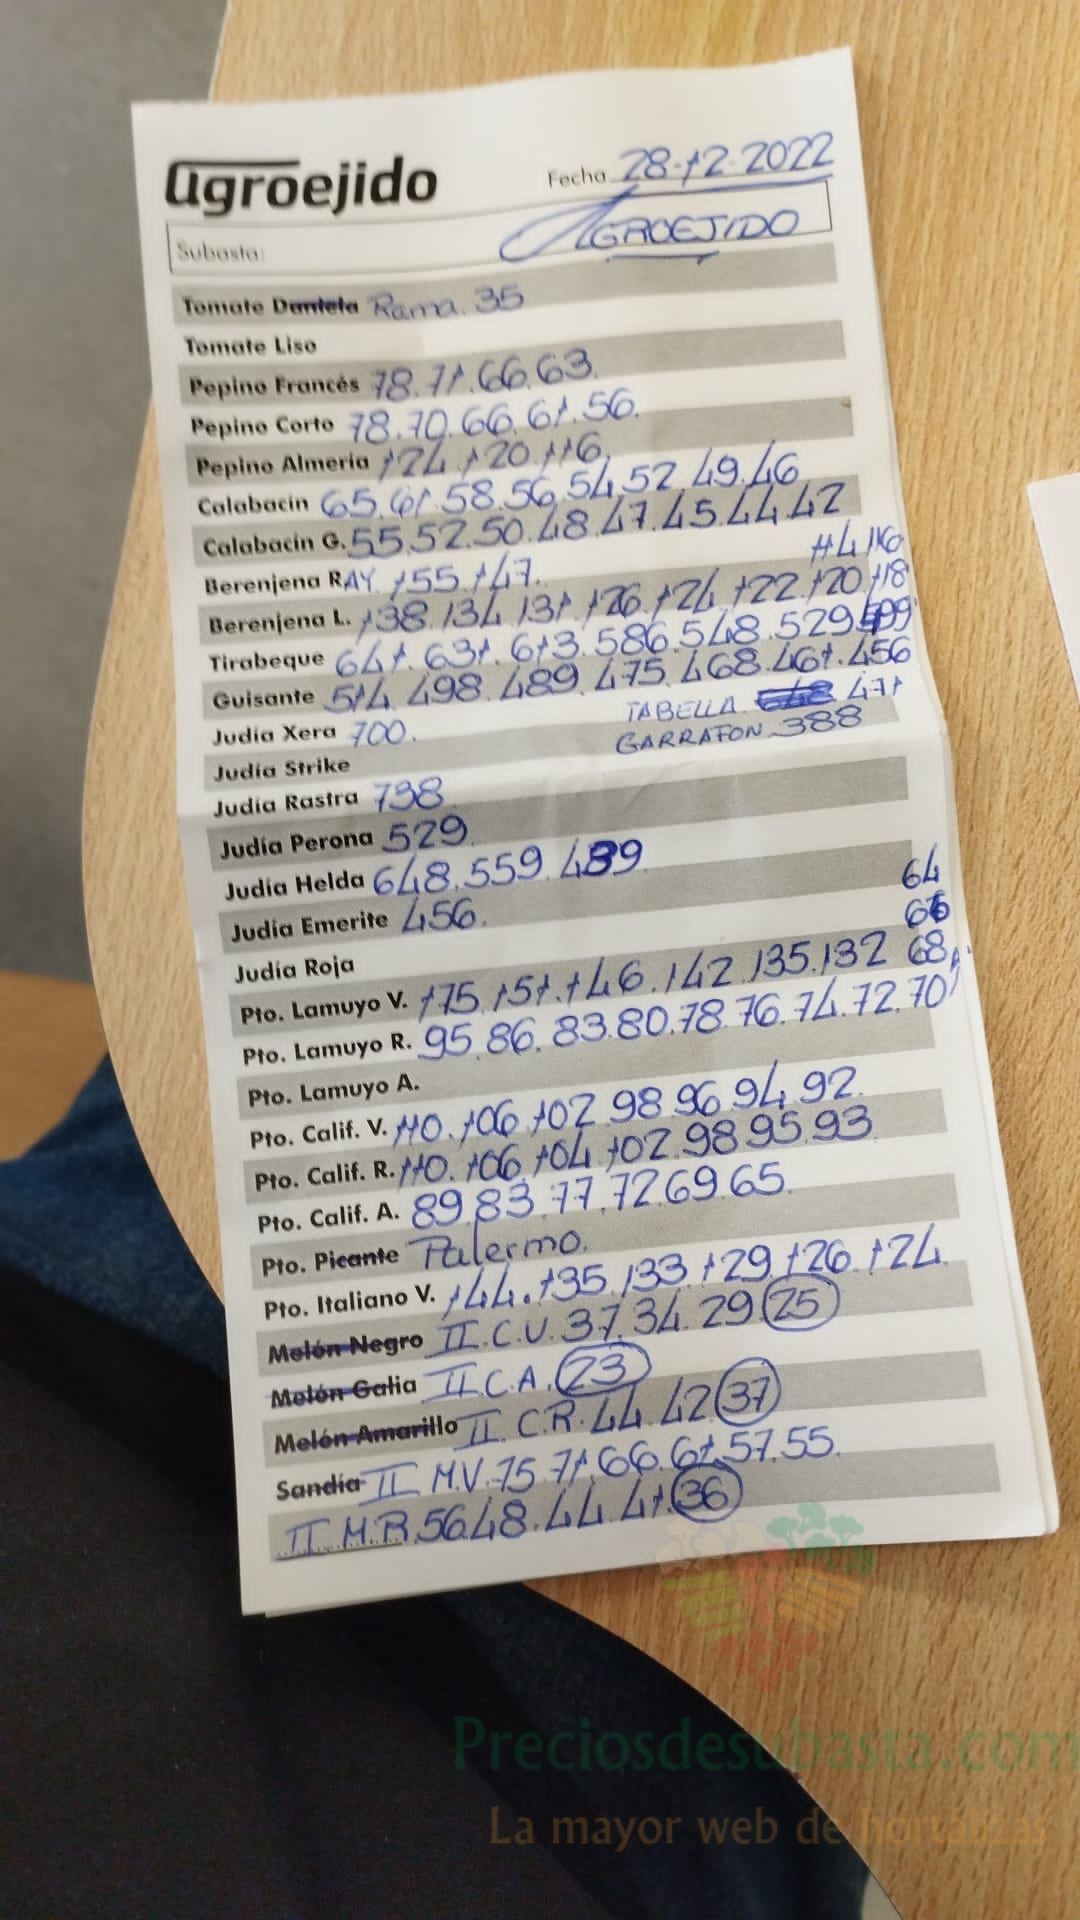 agroejido
Fecha 28-12-2022
Subasta: AGROEJIDO
Tomate Daniela Rama. 35
Tomate Liso
Pepino Francés 78.71.66.63.
Pepino Corto 78.70.66.61.56.
Pepino Almería 124.120.116.
Calabacín 65.61.58.56.54.52.49.46
Calabacín G. 55.52.50.48.47.45.44.42
114.116
Berenjena RAY. 155.147.
Berenjena L. 138.134.131.126.124.122.120.118
Tirabeque 641.631.613.586.548.529.
Guisante 514.498.489.475.468.461.456
Judía Xera 700. TABELLA 471
Judía Strike GARRAFON 388
Judía Rastra 738
Judía Perona 529
Judía Helda 648.559.489
Judía Emerite 456.
64
Judía Roja 66
Pto. Lamuyo V. 175.151.146.142.135.132 68
Pto. Lamuyo R. 95.86.83.80.78.76.74.72.70
Pto. Lamuyo A.
Pto. Calif. V. 110.106.102.98.96.94.92.
Pto. Calif. R. 110.106.104.102.98.95.93
Pto. Calif. A. 89.83.77.72.69.65.
Pto. Picante Palermo.
Pto. Italiano V. 144.135.133.129.126.124
Melón Negro II.C.V. 37.34.29.25
Melón Galia II.C.A. 23
Melón Amarillo II.C.R. 44.42.37
Sandía II M.V. 75.71.66.61.57.55.
II M.R. 56.48.44.41.36
Preciosdesubasta.com
La mayor web de hortalizas